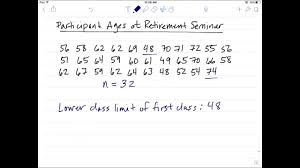 Participant Ages at Retirement Seminar
56 58 62 62 69 48 70 71 72 55 56
51 65 64 59 60 61 49 65 70 66 58
62 67 59 62 64 63 48 52 54 74
n = 32
Lower class limit of first class: 48